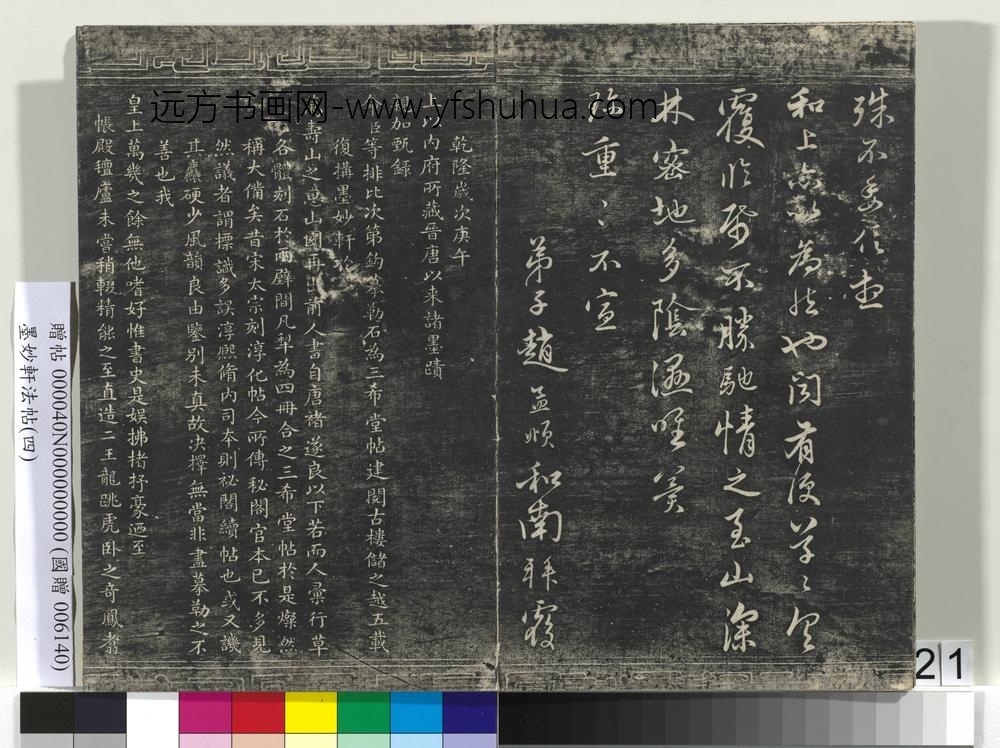 殊不委信也
和上亦以為然也因有没草々
覆臨紙不勝馳情之至山深
林密地多陰濕唯冀
珍重〻不宣
弟子趙孟頫和南拜覆
乾隆歲次庚午
上以内府所藏晉唐以来諸墨蹟
加甄録
臣等排比次第鈎摹勒石為三希堂帖建閱古樓儲之越五載
復搆墨妙軒於
壽山之惠山園再出前人書自唐褚遂良以下若而人彙行草
各體刻石於兩壁間凡犁為四冊合之三希堂帖於是燦然
稱大備矣昔宋太宗刻淳化帖今所傳秘閣官本已不多見
然議者謂標識多誤淳熙脩内司本則祕閣續帖也或又譏
其麤硬少風韻良由鑒別未真故決擇無當非盡摹勒之不
善也我
皇上萬幾之餘無他嗜好惟書史是娱拂楮抒豪迺至
帳殿氊廬未嘗稍輟精能之至直造二王龍跳虎卧之奇鳳翥
远方书画网-www.yfshuhua.com
贈帖 000040N000000000 (國贈 006140)
墨妙軒法帖(四)
21